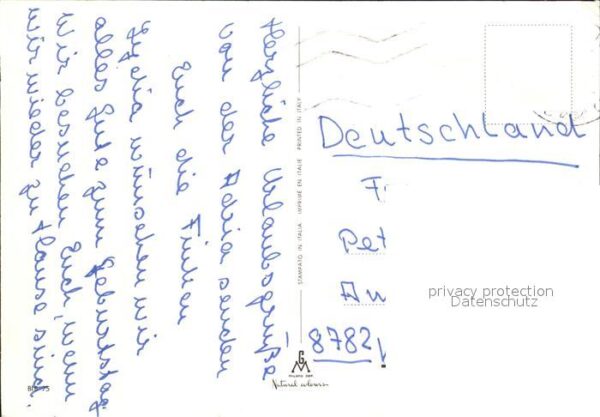 Herzliche Urlaubsgrüße
von der Adria senden
Euch die Finken
Lydia wünschen wir
alles Gute zum Geburtstag
Wir besuchen Euch, wenn
wir wieder zu Hause sind.
STAMPATO IN ITALIA IMPRIME EN ITALIE PRINTED IN ITALY
Deutschland
F
Pet
An
8782
privacy protection
Datenschutz
GM
Natural colours